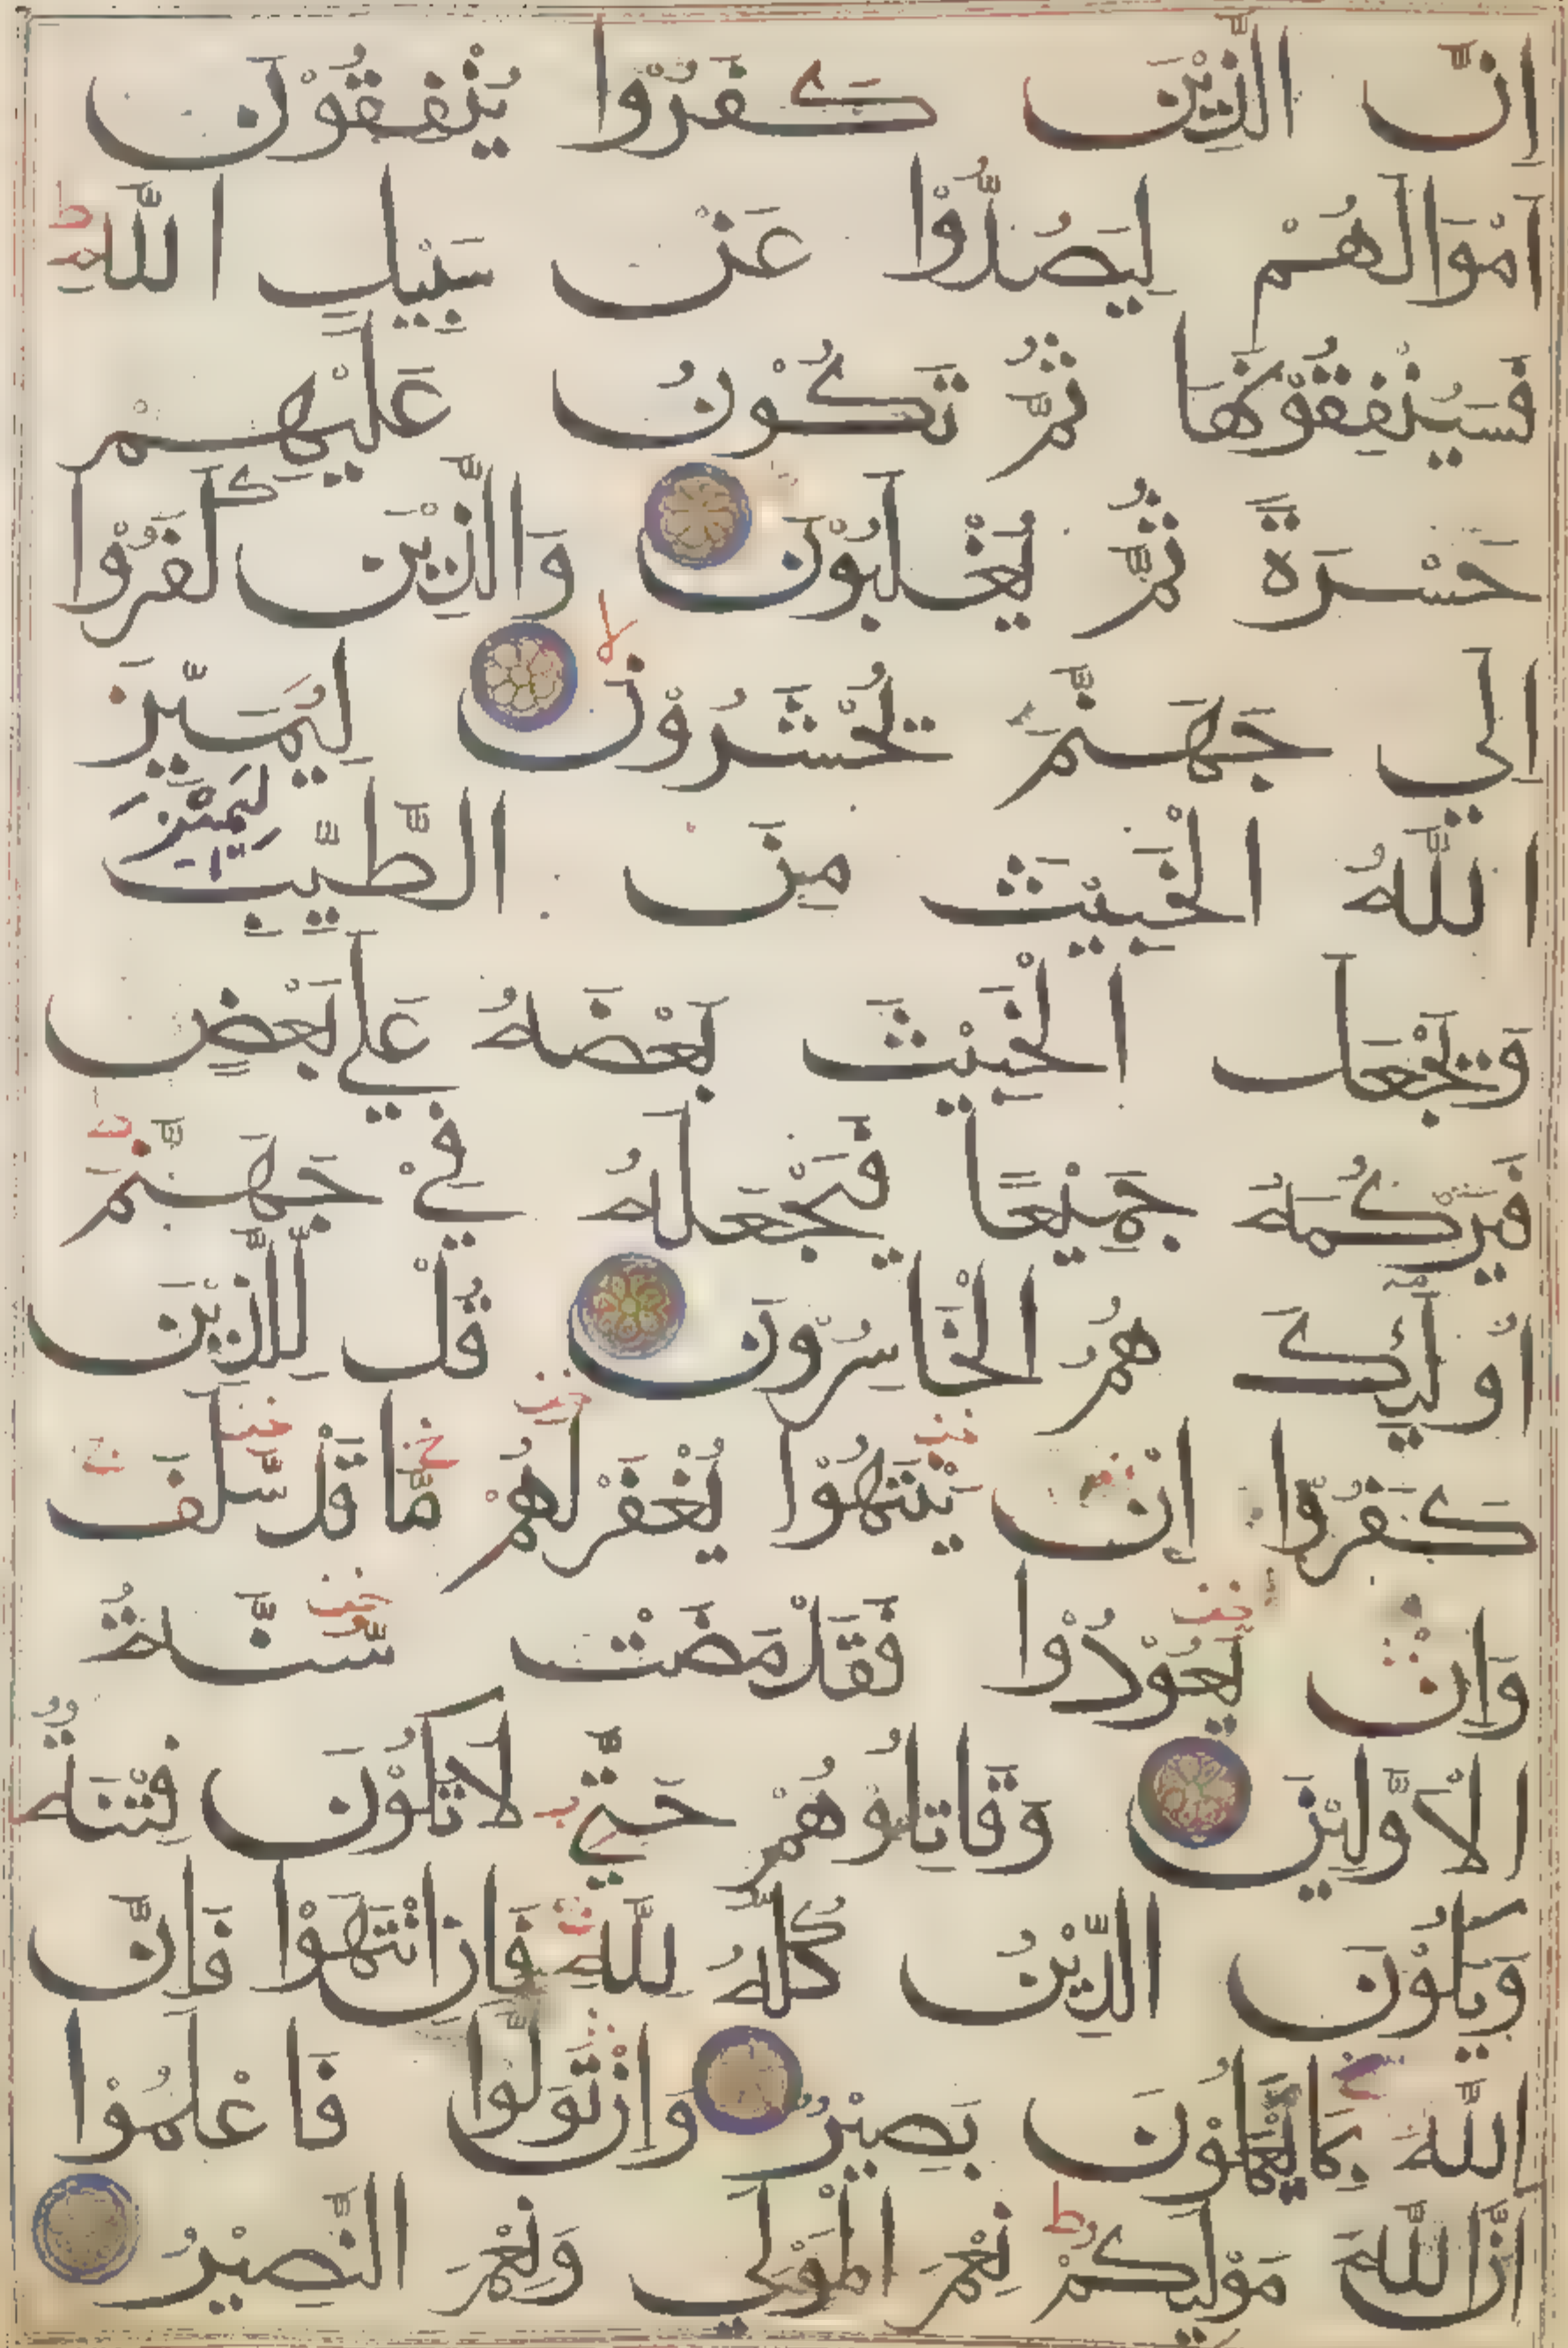 اِنَّ الَّذِيْنَ كَفَرُوْا يُنْفِقُوْنَ
اَمْوَالَهُمْ لِيَصُدُّوْا عَنْ سَبِيْلِ اللّٰهِ ط
فَسَيُنْفِقُوْنَهَا ثُمَّ تَكُوْنُ عَلَيْهِمْ
حَسْرَةً ثُمَّ يُغْلَبُوْنَ وَالَّذِيْنَ كَفَرُوْا
اِلٰي جَهَنَّمَ يُحْشَرُوْنَ لا لِيُمَيِّزَ
لِيَمِيْزَ
اللّٰهُ الْخَبِيْثَ مِنَ الطَّيِّبِ
وَيَجْعَلَ الْخَبِيْثَ بَعْضَهُ عَلٰي بَعْضٍ
فَيَرْكُمَهُ جَمِيْعًا فَيَجْعَلَهُ فِيْ جَهَنَّمَ ط
اُولٰئِكَ هُمُ الْخَاسِرُوْنَ قُلْ لِلَّذِيْنَ
كَفَرُوْا اِنْ يَنْتَهُوْا يُغْفَرْ لَهُمْ مَّا قَدْ سَّلَفَ
وَاِنْ يَعُوْدُوْا فَقَدْ مَضَتْ سُنَّةُ
الْاَوَّلِيْنَ وَقَاتِلُوْهُمْ حَتّٰي لَا تَكُوْنَ فِتْنَةٌ
وَيَكُوْنَ الدِّيْنُ كُلُّهُ لِلّٰهِ فَاِنِ انْتَهَوْا فَاِنَّ
اللّٰهَ بِمَا يَعْمَلُوْنَ بَصِيْرٌ وَاِنْ تَوَلَّوْا فَاعْلَمُوْا
اَنَّ اللّٰهَ مَوْلٰيكُمْ ط نِعْمَ الْمَوْلٰي وَنِعْمَ النَّصِيْرُ